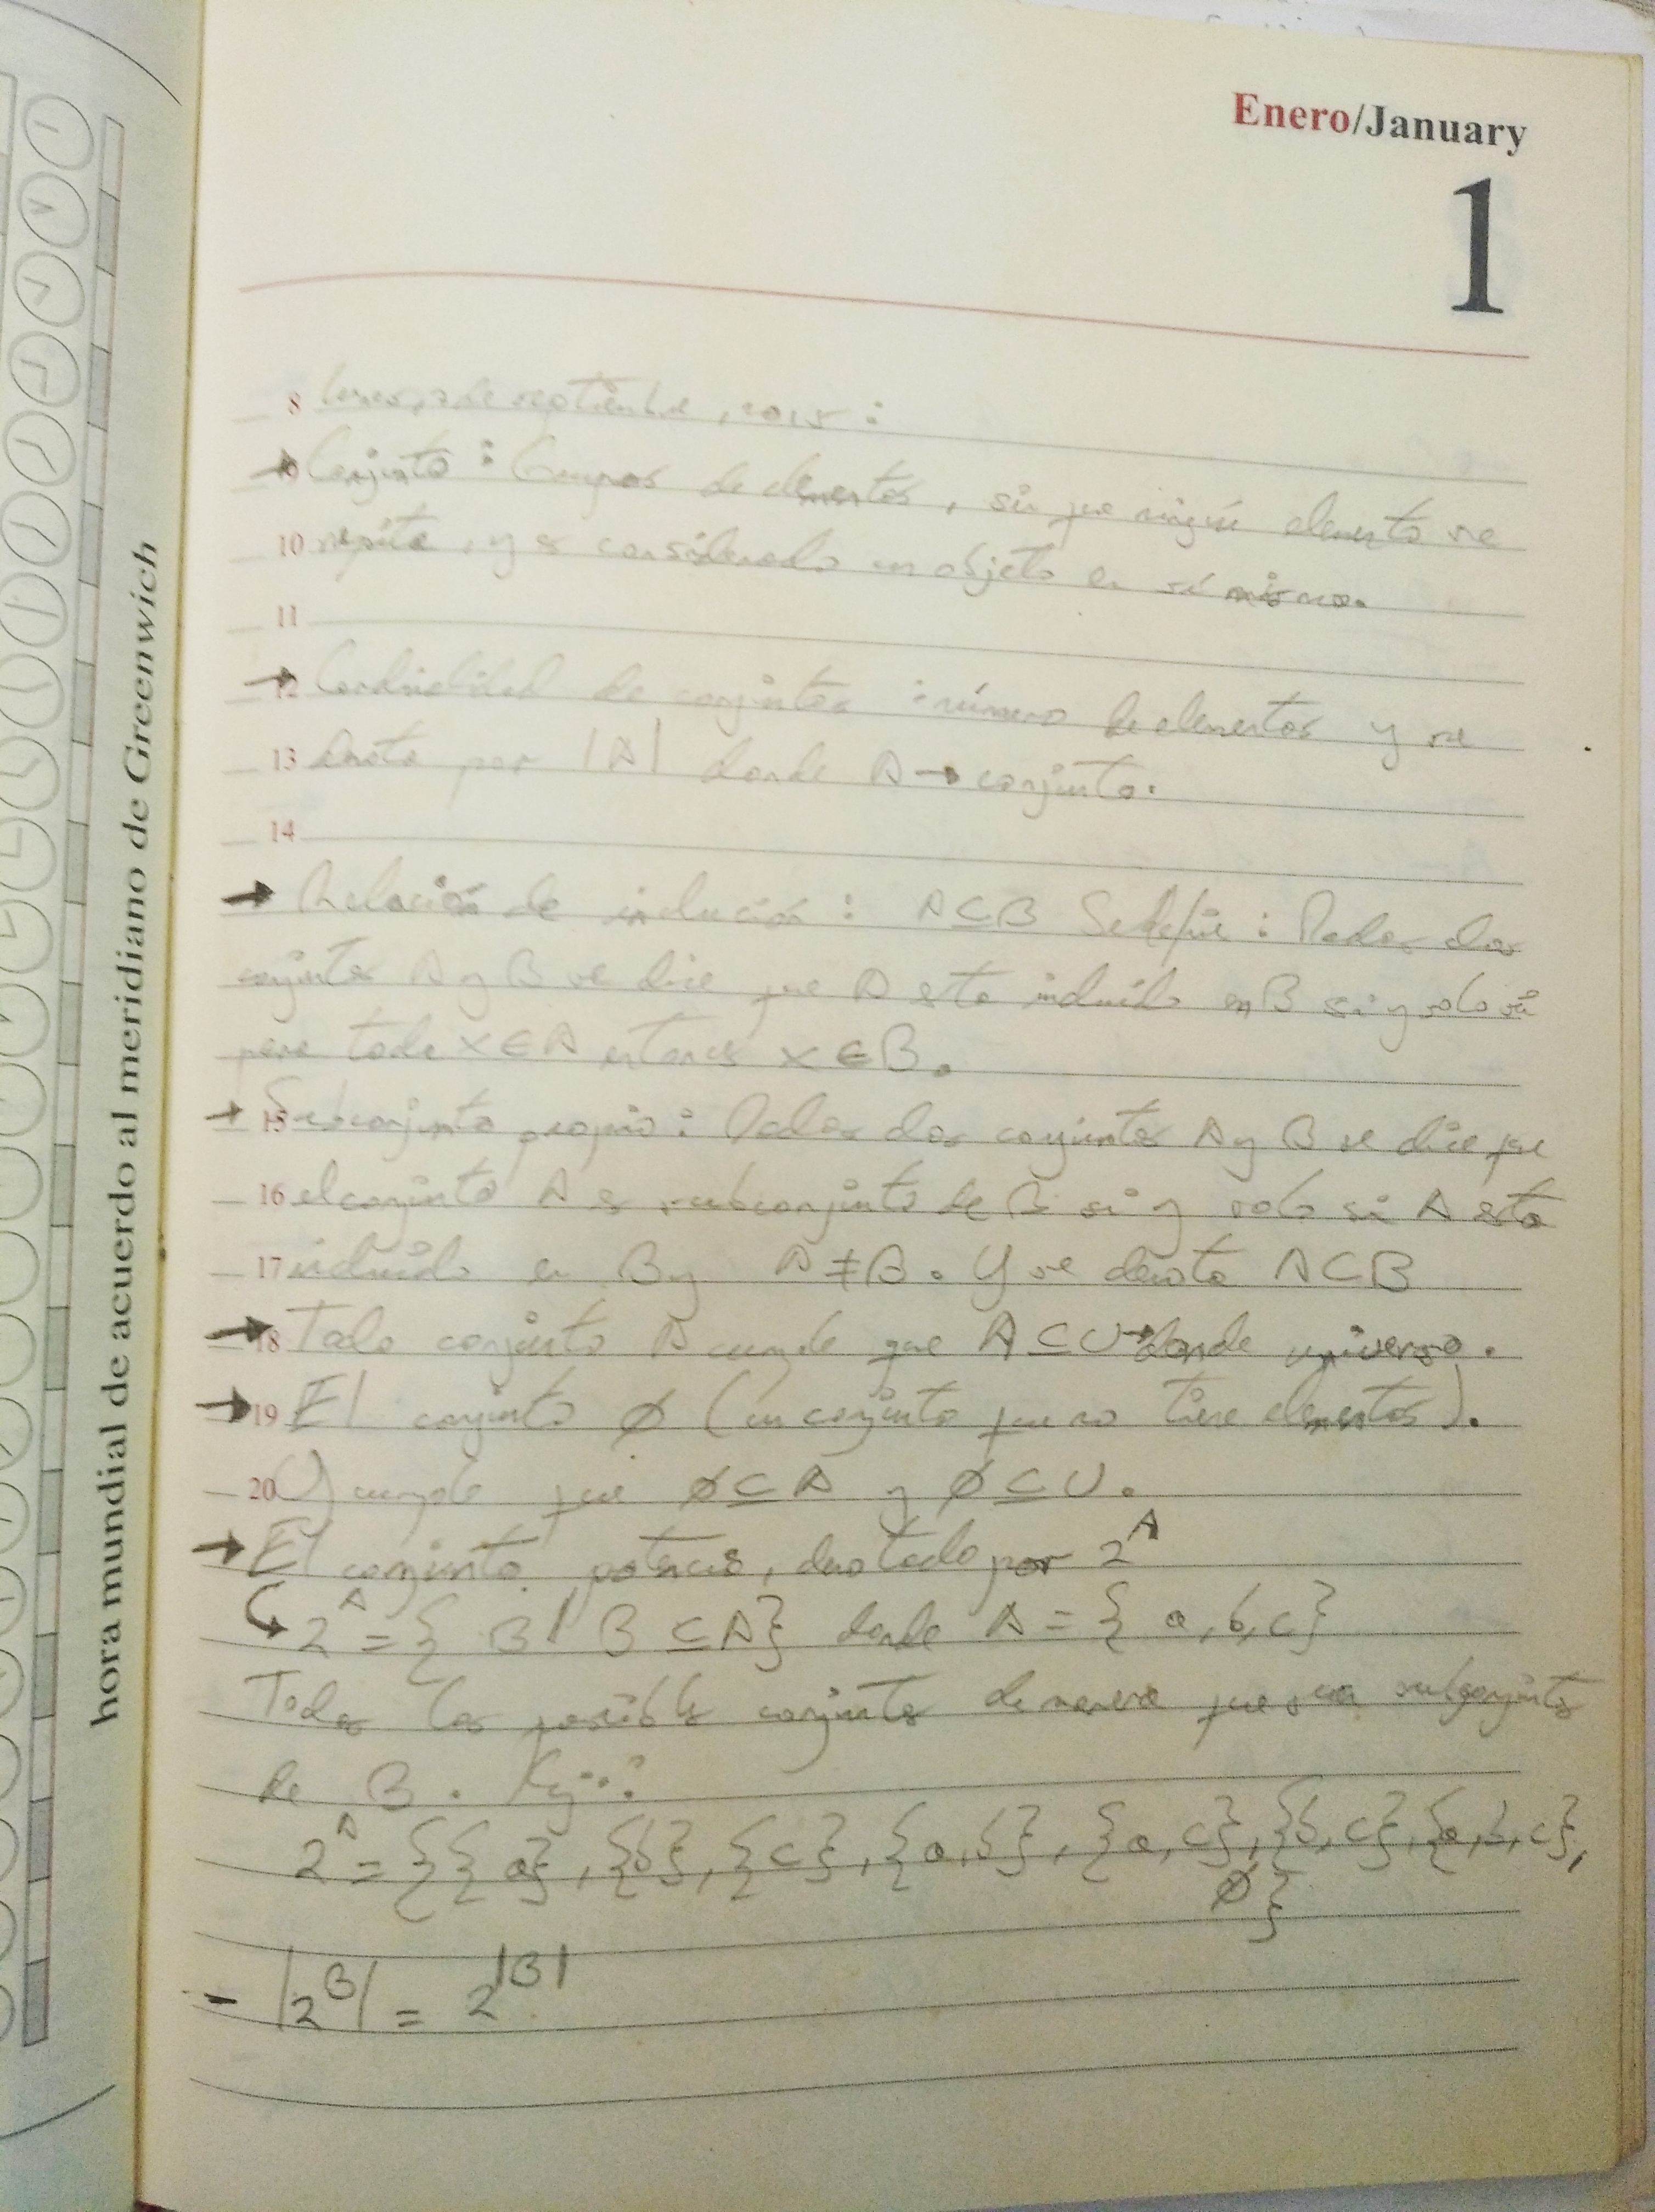 hora mundial de acuerdo al meridiano de Greenwich
Enero/January
1
8 lunes, 7 de septiembre, 2015:
→ Conjunto: Grupos de elementos, sin que ningún elemento se
10 repita, y es considerado un objeto en sí mismo.
11
→ 12 Cardinalidad de conjuntos: número de elementos y se
13 denota por |A| donde A → conjunto.
14
→ Relación de inclución: A⊆B Se define: Dados dos
conjuntos A y B se dice que A esta incluído en B si y solo si
para todo x∈A entonces x∈B.
→ 15 Subconjunto propio: Dados dos conjuntos A y B se dice que
16 el conjunto A es subconjunto de B si y solo si A esta
17 incluído en B y A≠B. Y se denota A⊂B
→ 18 Todo conjunto A cumple que A⊆U→donde universo.
→ 19 El conjunto ∅ (un conjunto que no tiene elementos).
20 Y cumple que ∅⊆A y ∅⊆U.
→ El conjunto potencia, denotado por 2^A
↳ 2^A = { B | B ⊆ A} donde A = { a, b, c}
Todos los posibles conjuntos de manera que sean subconjuntos
de B. Ej.:
2^A = {{a}, {b}, {c}, {a,b}, {a,c}, {b,c}, {a,b,c},
∅}
- |2^B| = 2^|B|